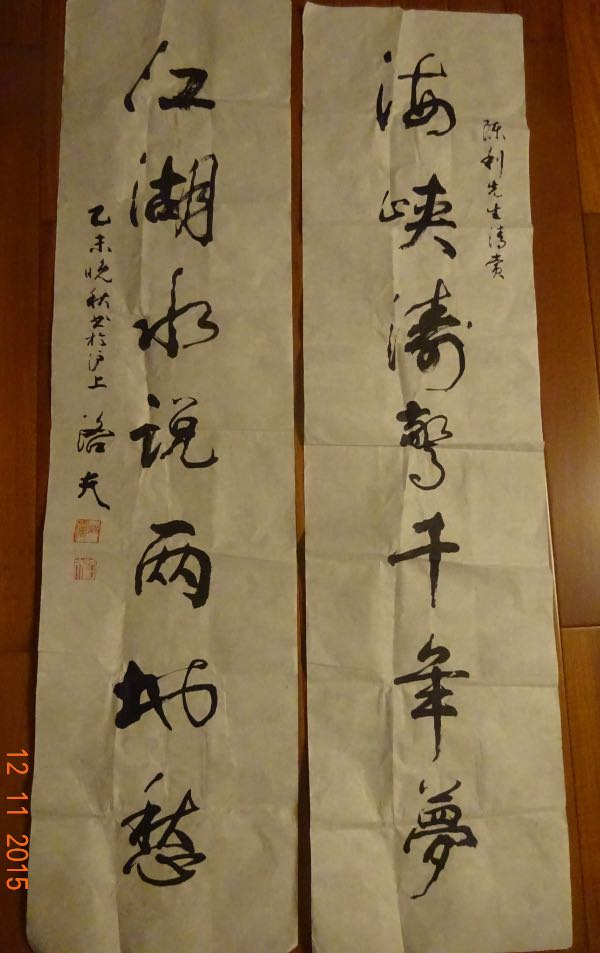 海峡涛驚千年夢
陈利先生清赏
江湖水说两地愁
乙未晚秋书於沪上
洛夫
12 11 2015